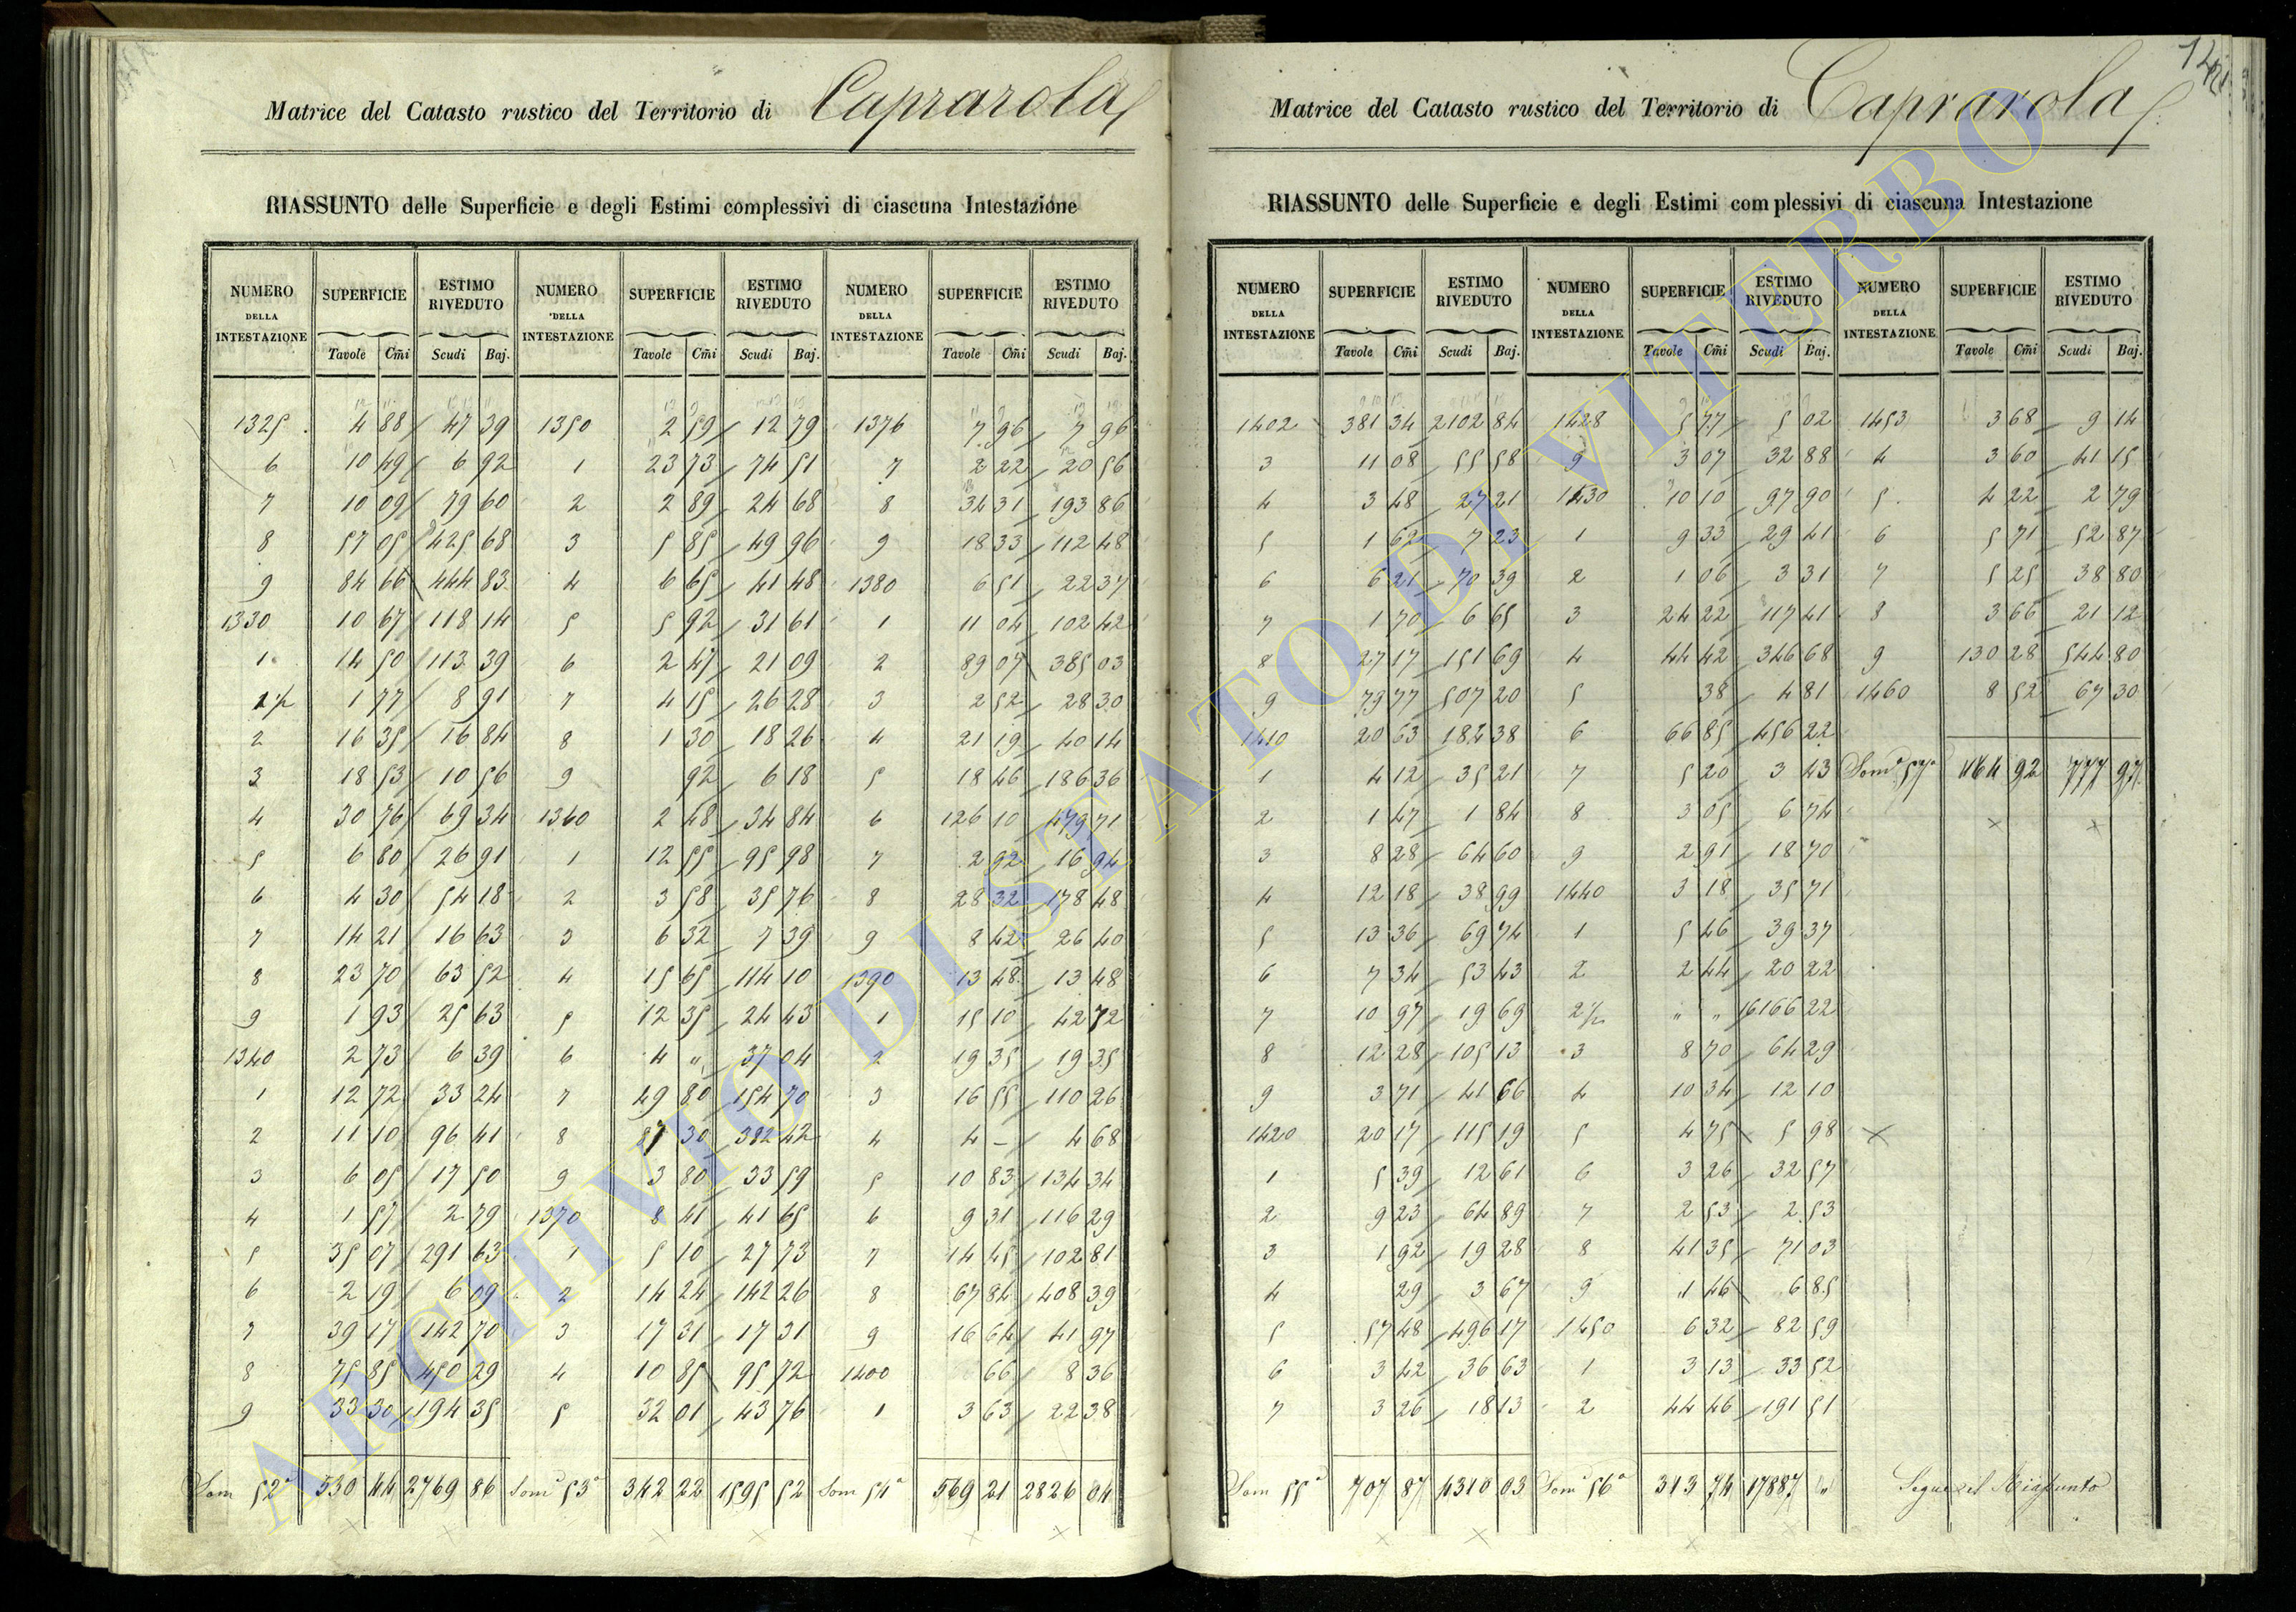 Matrice del Catasto rustico del Territorio di Caprarola
RIASSUNTO delle Superficie e degli Estimi complessivi di ciascuna Intestazione
NUMERO DELLA INTESTAZIONE SUPERFICIE ESTIMO RIVEDUTO NUMERO DELLA INTESTAZIONE SUPERFICIE ESTIMO RIVEDUTO NUMERO DELLA INTESTAZIONE SUPERFICIE ESTIMO RIVEDUTO
Tavole Cm̃i Scudi Baj. Tavole Cm̃i Scudi Baj. Tavole Cm̃i Scudi Baj.
1325 4 88 47 39 1350 2 59 12 79 1376 7 96 7 96
6 10 49 6 92 1 23 73 74 51 7 2 22 20 56
7 10 09 79 60 2 2 89 24 68 8 34 31 193 86
8 57 05 425 68 3 5 85 49 96 9 18 33 112 48
9 84 66 444 83 4 6 65 41 48 1380 6 51 22 37
1330 10 67 118 14 5 5 92 31 61 1 11 04 102 42
1 14 50 113 39 6 2 47 21 09 2 89 07 385 03
1½ 1 77 8 91 7 4 15 26 28 3 2 52 28 30
2 16 35 16 84 8 1 30 18 26 4 21 19 40 14
3 18 53 10 56 9 92 6 18 5 18 46 186 36
4 30 76 69 34 1360 2 48 34 84 6 126 10 479 71
5 6 80 26 91 1 12 55 95 98 7 2 92 16 94
6 4 30 54 18 2 3 58 35 76 8 28 32 178 48
7 14 21 16 63 3 6 32 7 39 9 8 42 26 40
8 23 70 63 52 4 15 65 114 10 1390 13 48 13 48
9 1 93 25 63 5 12 35 24 43 1 15 10 42 72
1340 2 73 6 39 6 4 " 37 04 2 19 35 19 35
1 12 72 33 24 7 49 80 154 70 3 16 55 110 26
2 11 10 96 41 8 87 30 382 42 4 4 – 4 68
3 6 05 17 50 9 3 80 33 59 5 10 83 134 34
4 1 57 2 79 1370 8 41 41 65 6 9 31 116 29
5 35 07 291 63 1 5 10 27 73 7 14 45 102 81
6 2 19 6 09 2 14 24 142 26 8 67 84 408 39
7 39 17 142 70 3 17 31 17 31 9 16 64 41 97
8 75 85 450 29 4 10 85 95 72 1400 66 8 36
9 33 30 194 35 5 32 01 43 76 1 3 63 22 38
Som 52ª 530 44 2769 86 Somª 53ª 342 22 1595 52 Som 54ª 569 21 2826 04
Matrice del Catasto rustico del Territorio di Caprarola
RIASSUNTO delle Superficie e degli Estimi complessivi di ciascuna Intestazione
NUMERO DELLA INTESTAZIONE SUPERFICIE ESTIMO RIVEDUTO NUMERO DELLA INTESTAZIONE SUPERFICIE ESTIMO RIVEDUTO NUMERO DELLA INTESTAZIONE SUPERFICIE ESTIMO RIVEDUTO
Tavole Cm̃i Scudi Baj. Tavole Cm̃i Scudi Baj. Tavole Cm̃i Scudi Baj.
1402 381 34 2102 84 1428 5 77 5 02 1453 3 68 9 14
3 11 08 55 58 9 3 07 32 88 4 3 60 41 15
4 3 48 27 21 1430 10 10 97 90 5 4 22 2 79
5 1 62 7 23 1 9 33 29 41 6 5 71 52 87
6 6 21 70 39 2 1 06 3 31 7 5 25 38 80
7 1 70 6 65 3 24 22 117 41 8 3 66 21 12
8 27 17 151 69 4 44 42 346 68 9 130 28 544 80
9 79 77 507 20 5 38 4 81 1460 8 52 67 30
1410 20 63 182 38 6 66 85 456 22
1 4 12 35 21 7 5 20 3 43 Somª 57ª 164 92 777 97
2 1 47 1 84 8 3 05 6 74
3 8 28 64 60 9 2 91 18 70
4 12 18 38 99 1440 3 18 35 71
5 13 36 69 74 1 5 46 39 37
6 7 34 53 43 2 2 44 20 22
7 10 97 19 69 2½ " " 16166 22
8 12 28 105 13 3 8 70 64 29
9 3 71 41 66 4 10 34 12 10
1420 20 17 115 19 5 4 75 5 98
1 5 39 12 61 6 3 26 32 57
2 9 23 64 89 7 2 53 2 53
3 1 92 19 28 8 41 35 71 03
4 29 3 67 9 1 46 6 85
5 57 48 496 17 1450 6 32 82 59
6 3 42 36 63 1 3 13 33 52
7 3 26 18 13 2 44 46 191 51
Som 55ª 707 87 4310 03 Somª 56ª 313 74 17887 " Segue il Riassunto
ARCHIVIO DI STATO DI VITERBO